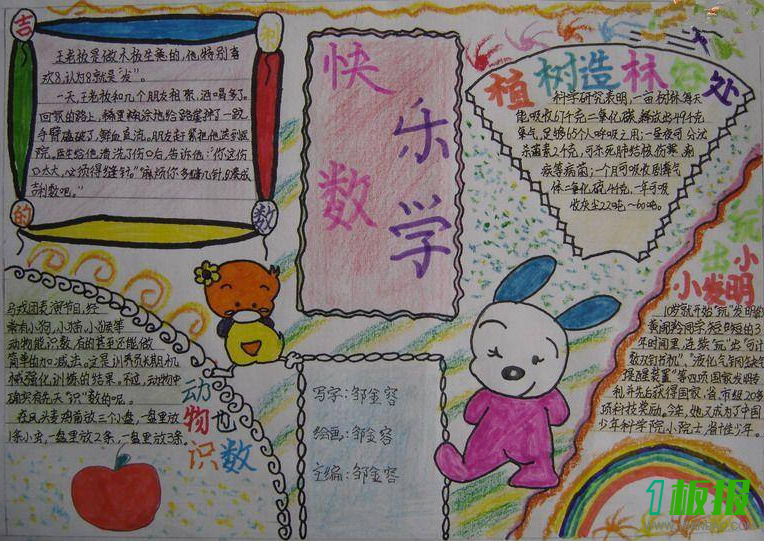 吉利的数
王老板是做木板生意的，他特别喜
欢8，认为8就是“发”。
一天，王老板和几个朋友相聚，酒喝多了。
回家的路上，稀里糊涂地给路崖绊了一跤，
手臂磕破了，鲜血直流。朋友赶紧把他送到医
院。医生给他清洗了伤口后，告诉他：“你这伤
口太大，必须得缝针。”“麻烦你多缝几针，8凑成
吉利数吧。”
快乐
数学
植树造林好处
科学研究表明，一亩树林，每天
能吸收67千克二氧化碳，释放出49千克
氧气，足够65个人呼吸之用；一昼夜可分泌
杀菌素2千克，可杀死肺结核、伤寒、痢
疾等病菌；一个月可吸收有毒气
体二氧化硫4千克，一年可吸
收灰尘22吨～60吨。
玩出小
小发明
10岁就开始“玩”发明的
黄同学，短短的3
年时间里，连续“玩”出“可计
数双钉书机”、“液化气
提醒装置”等四项国家发明专
利，并先后获得国家、省、市级20多
项科技奖励。今年，他又成为了中国
少年科学院小院士，省
马戏团表演节目，经
常有小狗，小猫，小猴等
动物能识数，有的甚至还能做
简单的加减法。这是训养员长期机
械强化训练的结果。不过，动物中
确实有先天“识”数的呢。
在凤头麦鸡前放三个小盘，一盘里放
1条小虫，一盘里放2条，一盘里放3条，
动物也
识数
写字：邹金容
绘画：邹金容
主编：邹金容
1板报